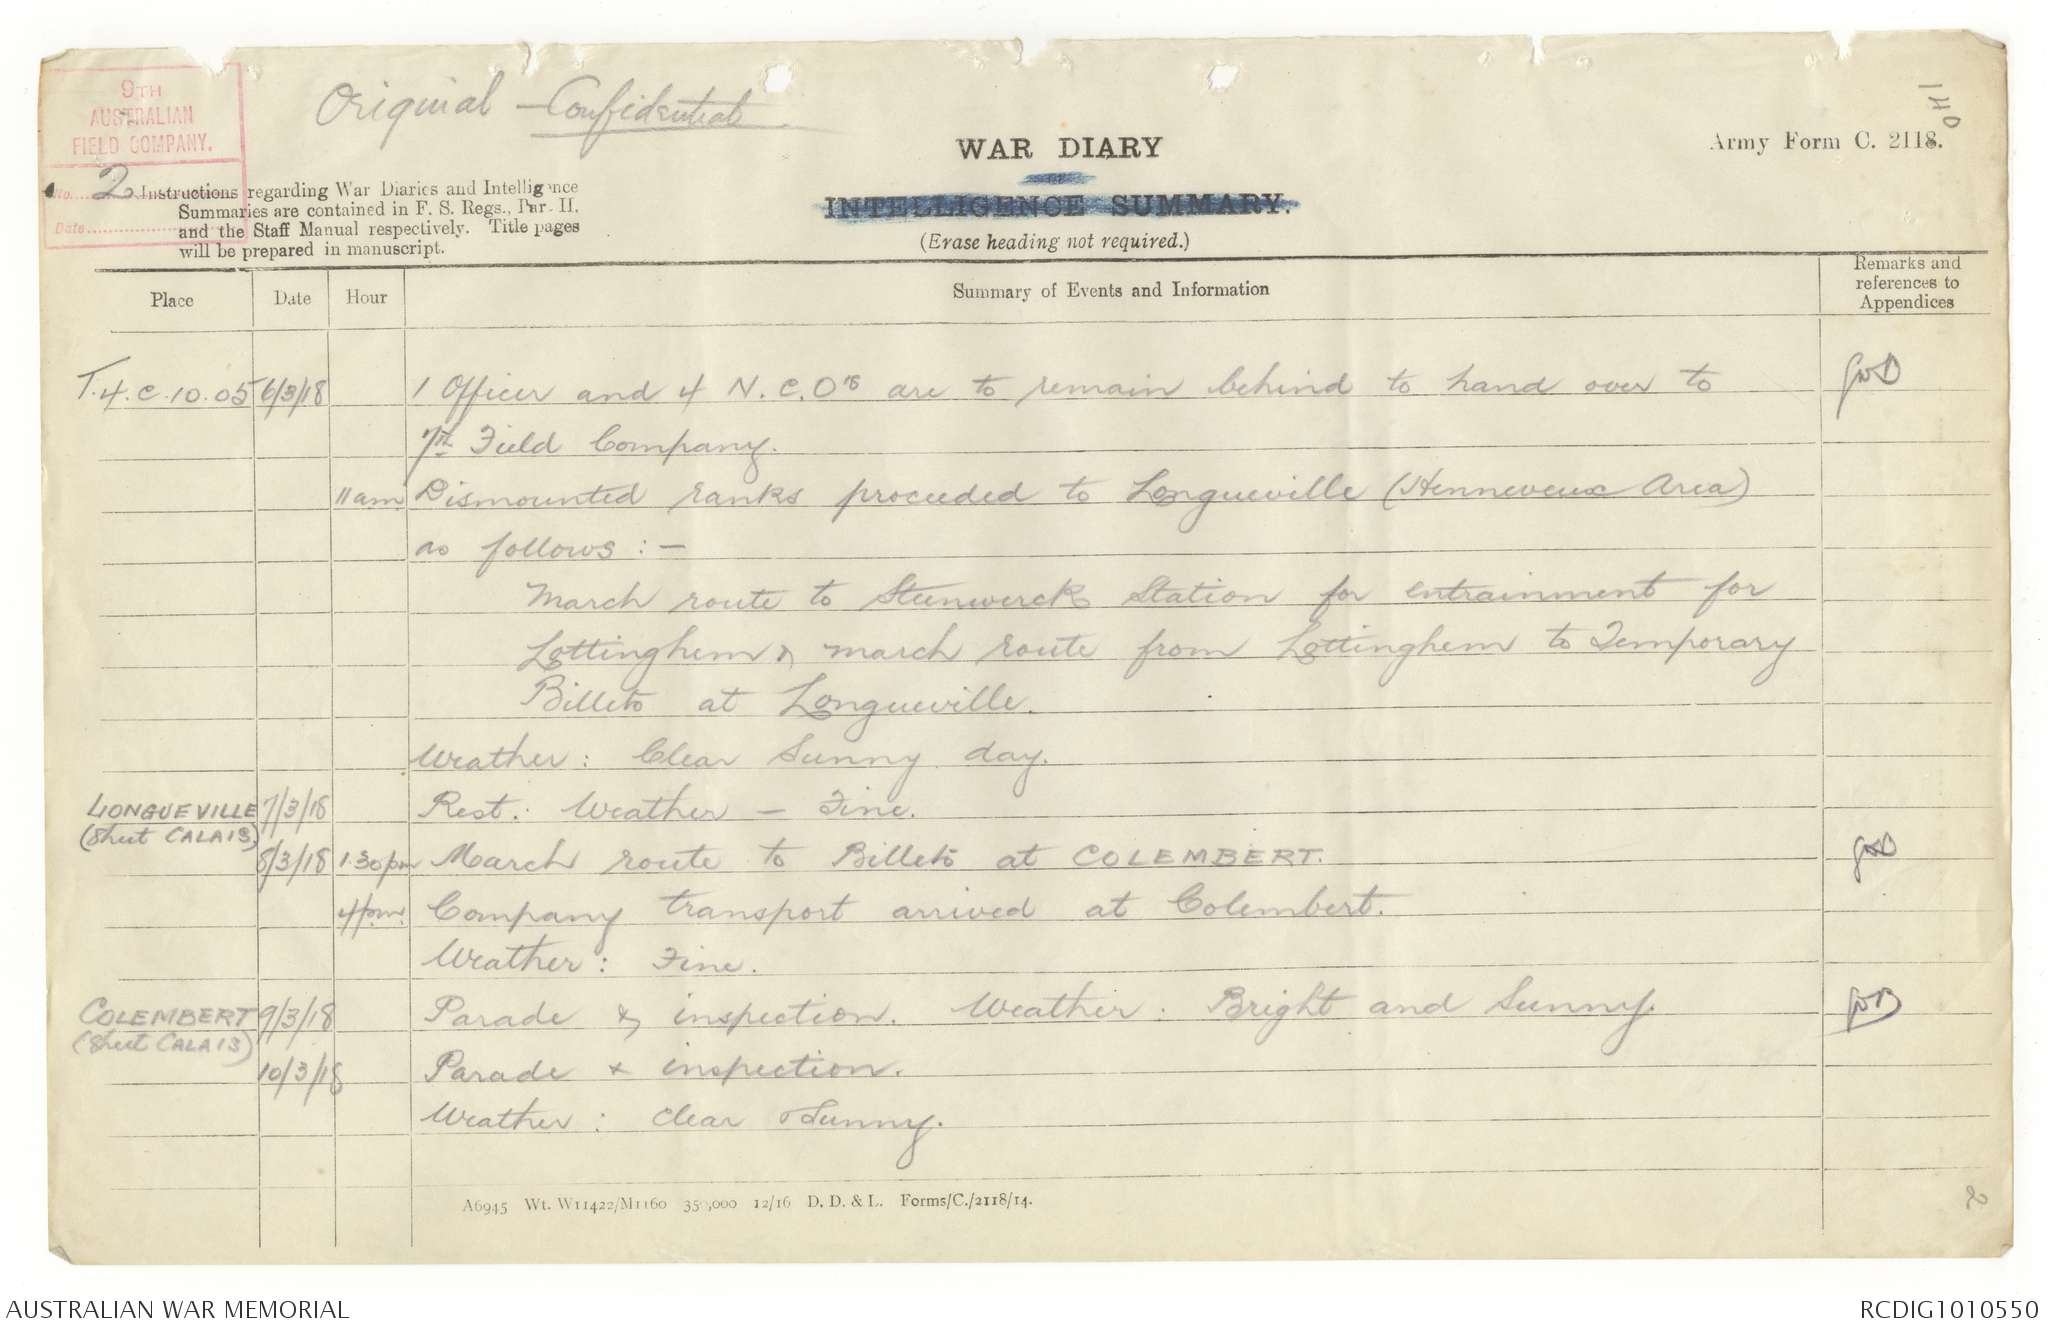 9TH
AUSTRALIAN
FIELD COMPANY.
No. 2
Date
Original - Confidential
WAR DIARY
INTELLIGENCE SUMMARY.
(Erase heading not required.)
Army Form C. 2118.
Instructions regarding War Diaries and Intelligence
Summaries are contained in F. S. Regs., Part II.
and the Staff Manual respectively. Title pages
will be prepared in manuscript.
Place Date Hour Summary of Events and Information Remarks and references to Appendices
T.4.C.10.05 6/3/18 1 Officer and 4 N.C.O's are to remain behind to hand over to
7th Field Company.
11am Dismounted ranks proceeded to Longueville (Henneveux Area)
as follows : —
March route to Steenwerck Station for entrainment for
Lottinghem & march route from Lottinghem to Temporary
Billets at Longueville.
Weather : Clear Sunny day.
LONGUEVILLE 7/3/18 Rest : Weather — Fine.
(Sheet CALAIS)
8/3/18 1.30pm March route to Billets at COLEMBERT.
4pm. Company transport arrived at Colembert.
Weather : Fine.
COLEMBERT 9/3/18 Parade & inspection. Weather : Bright and Sunny.
(Sheet CALAIS)
10/3/18 Parade + inspection.
Weather : Clear & Sunny.
A6945 Wt. W11422/M1160 350,000 12/16 D. D. & L. Forms/C./2118/14.
AUSTRALIAN WAR MEMORIAL
RCDIG1010550